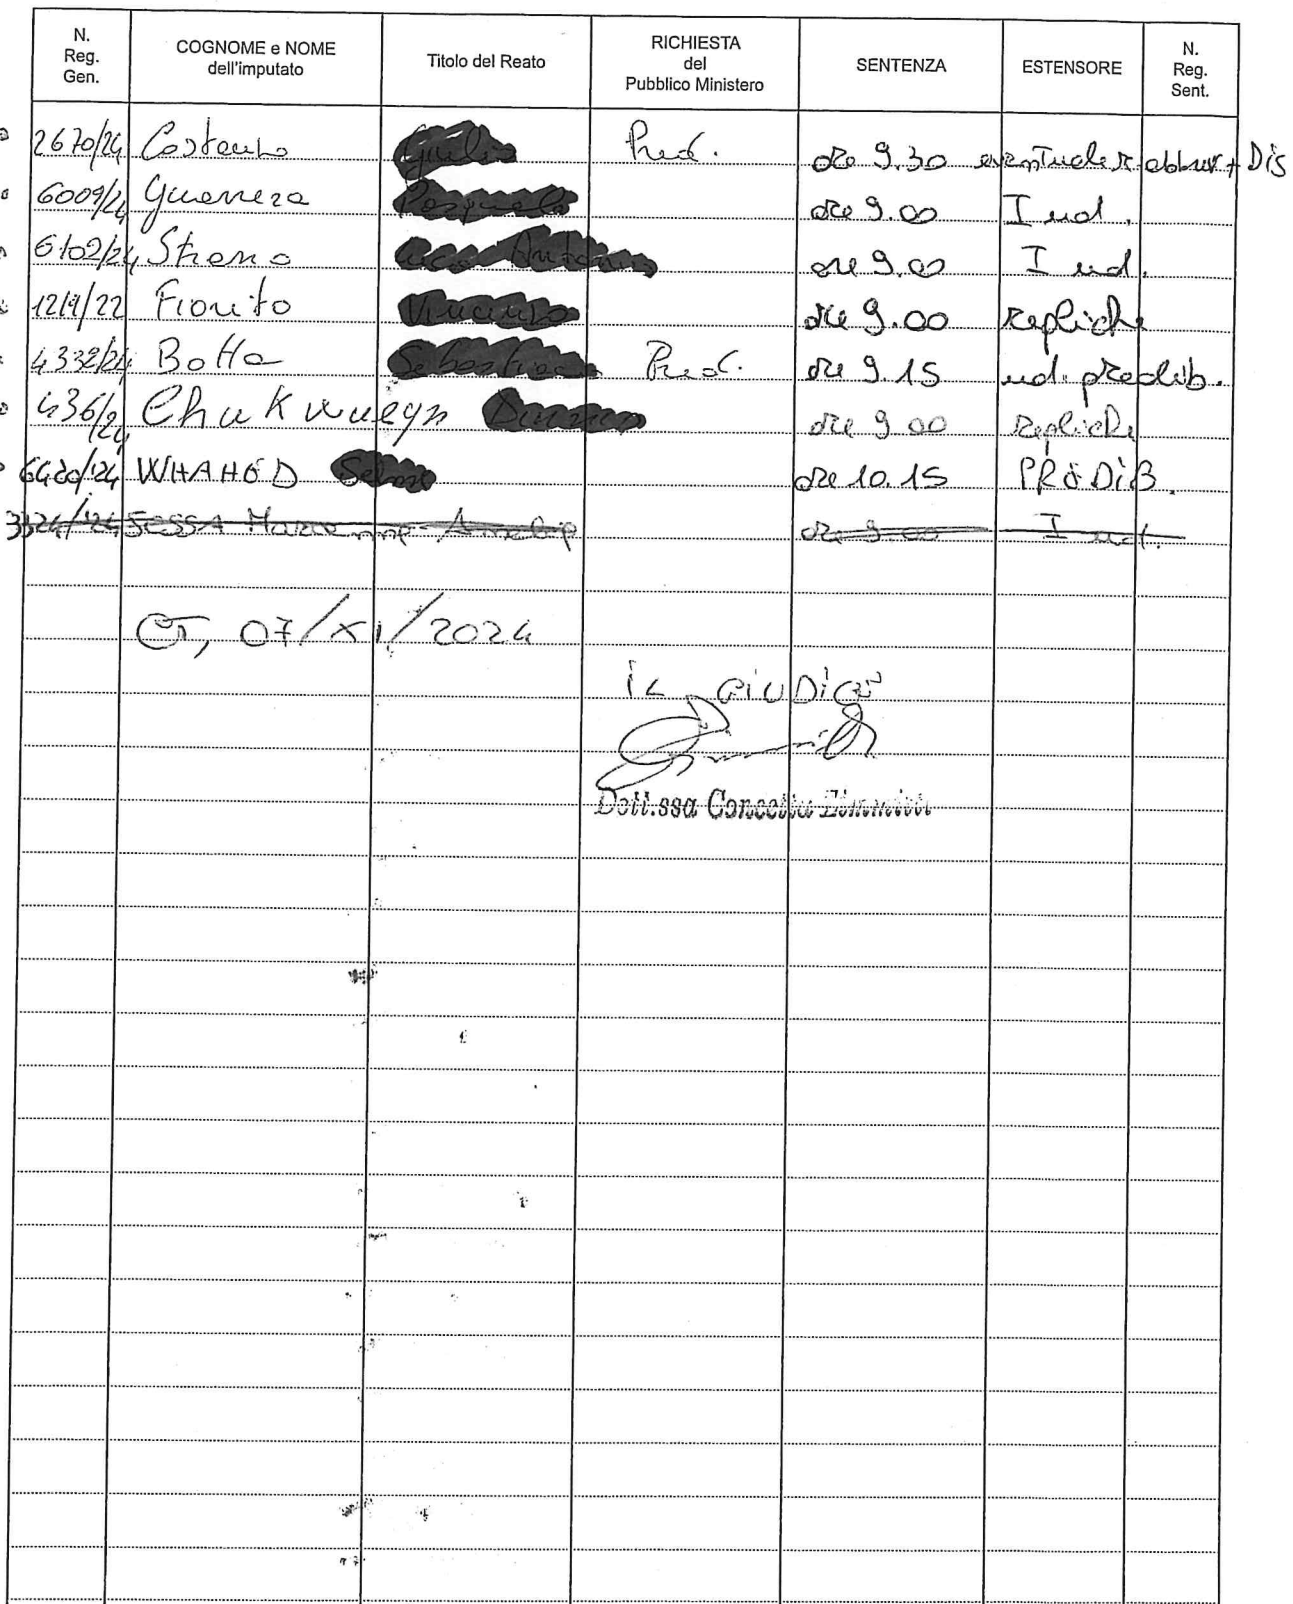 N. Reg. Gen. COGNOME e NOME dell'imputato Titolo del Reato RICHIESTA del Pubblico Ministero SENTENZA ESTENSORE N. Reg. Sent.
2670/24 Pred. ore 9.30 eventuale abbrev + Dis
6009/24 Guerrera ore 9.00 I ud.
6102/24 Strano ore 9.00 I ud.
1219/22 Fiorito ore 9.00 repliche
4332/24 Botta Pred. ore 9.15 ud. predib.
436/24 ore 9.00 repliche
WHAHED ore 10.15 PREDIB.
3324/24 SESSA ore 9.00 I ud.
CT, 07/XI/2024
IL GIUDICE
Dott.ssa Concetta